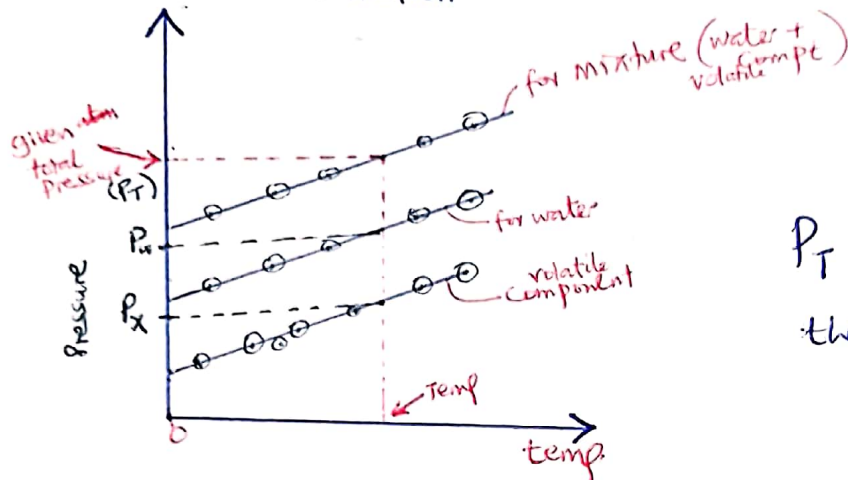 for mixture (water +
volatile compt)
given atm
total
Pressure
(PT)
Pw
for water
volatile
component
PX
Pressure
Temp
0
temp.
PT
th